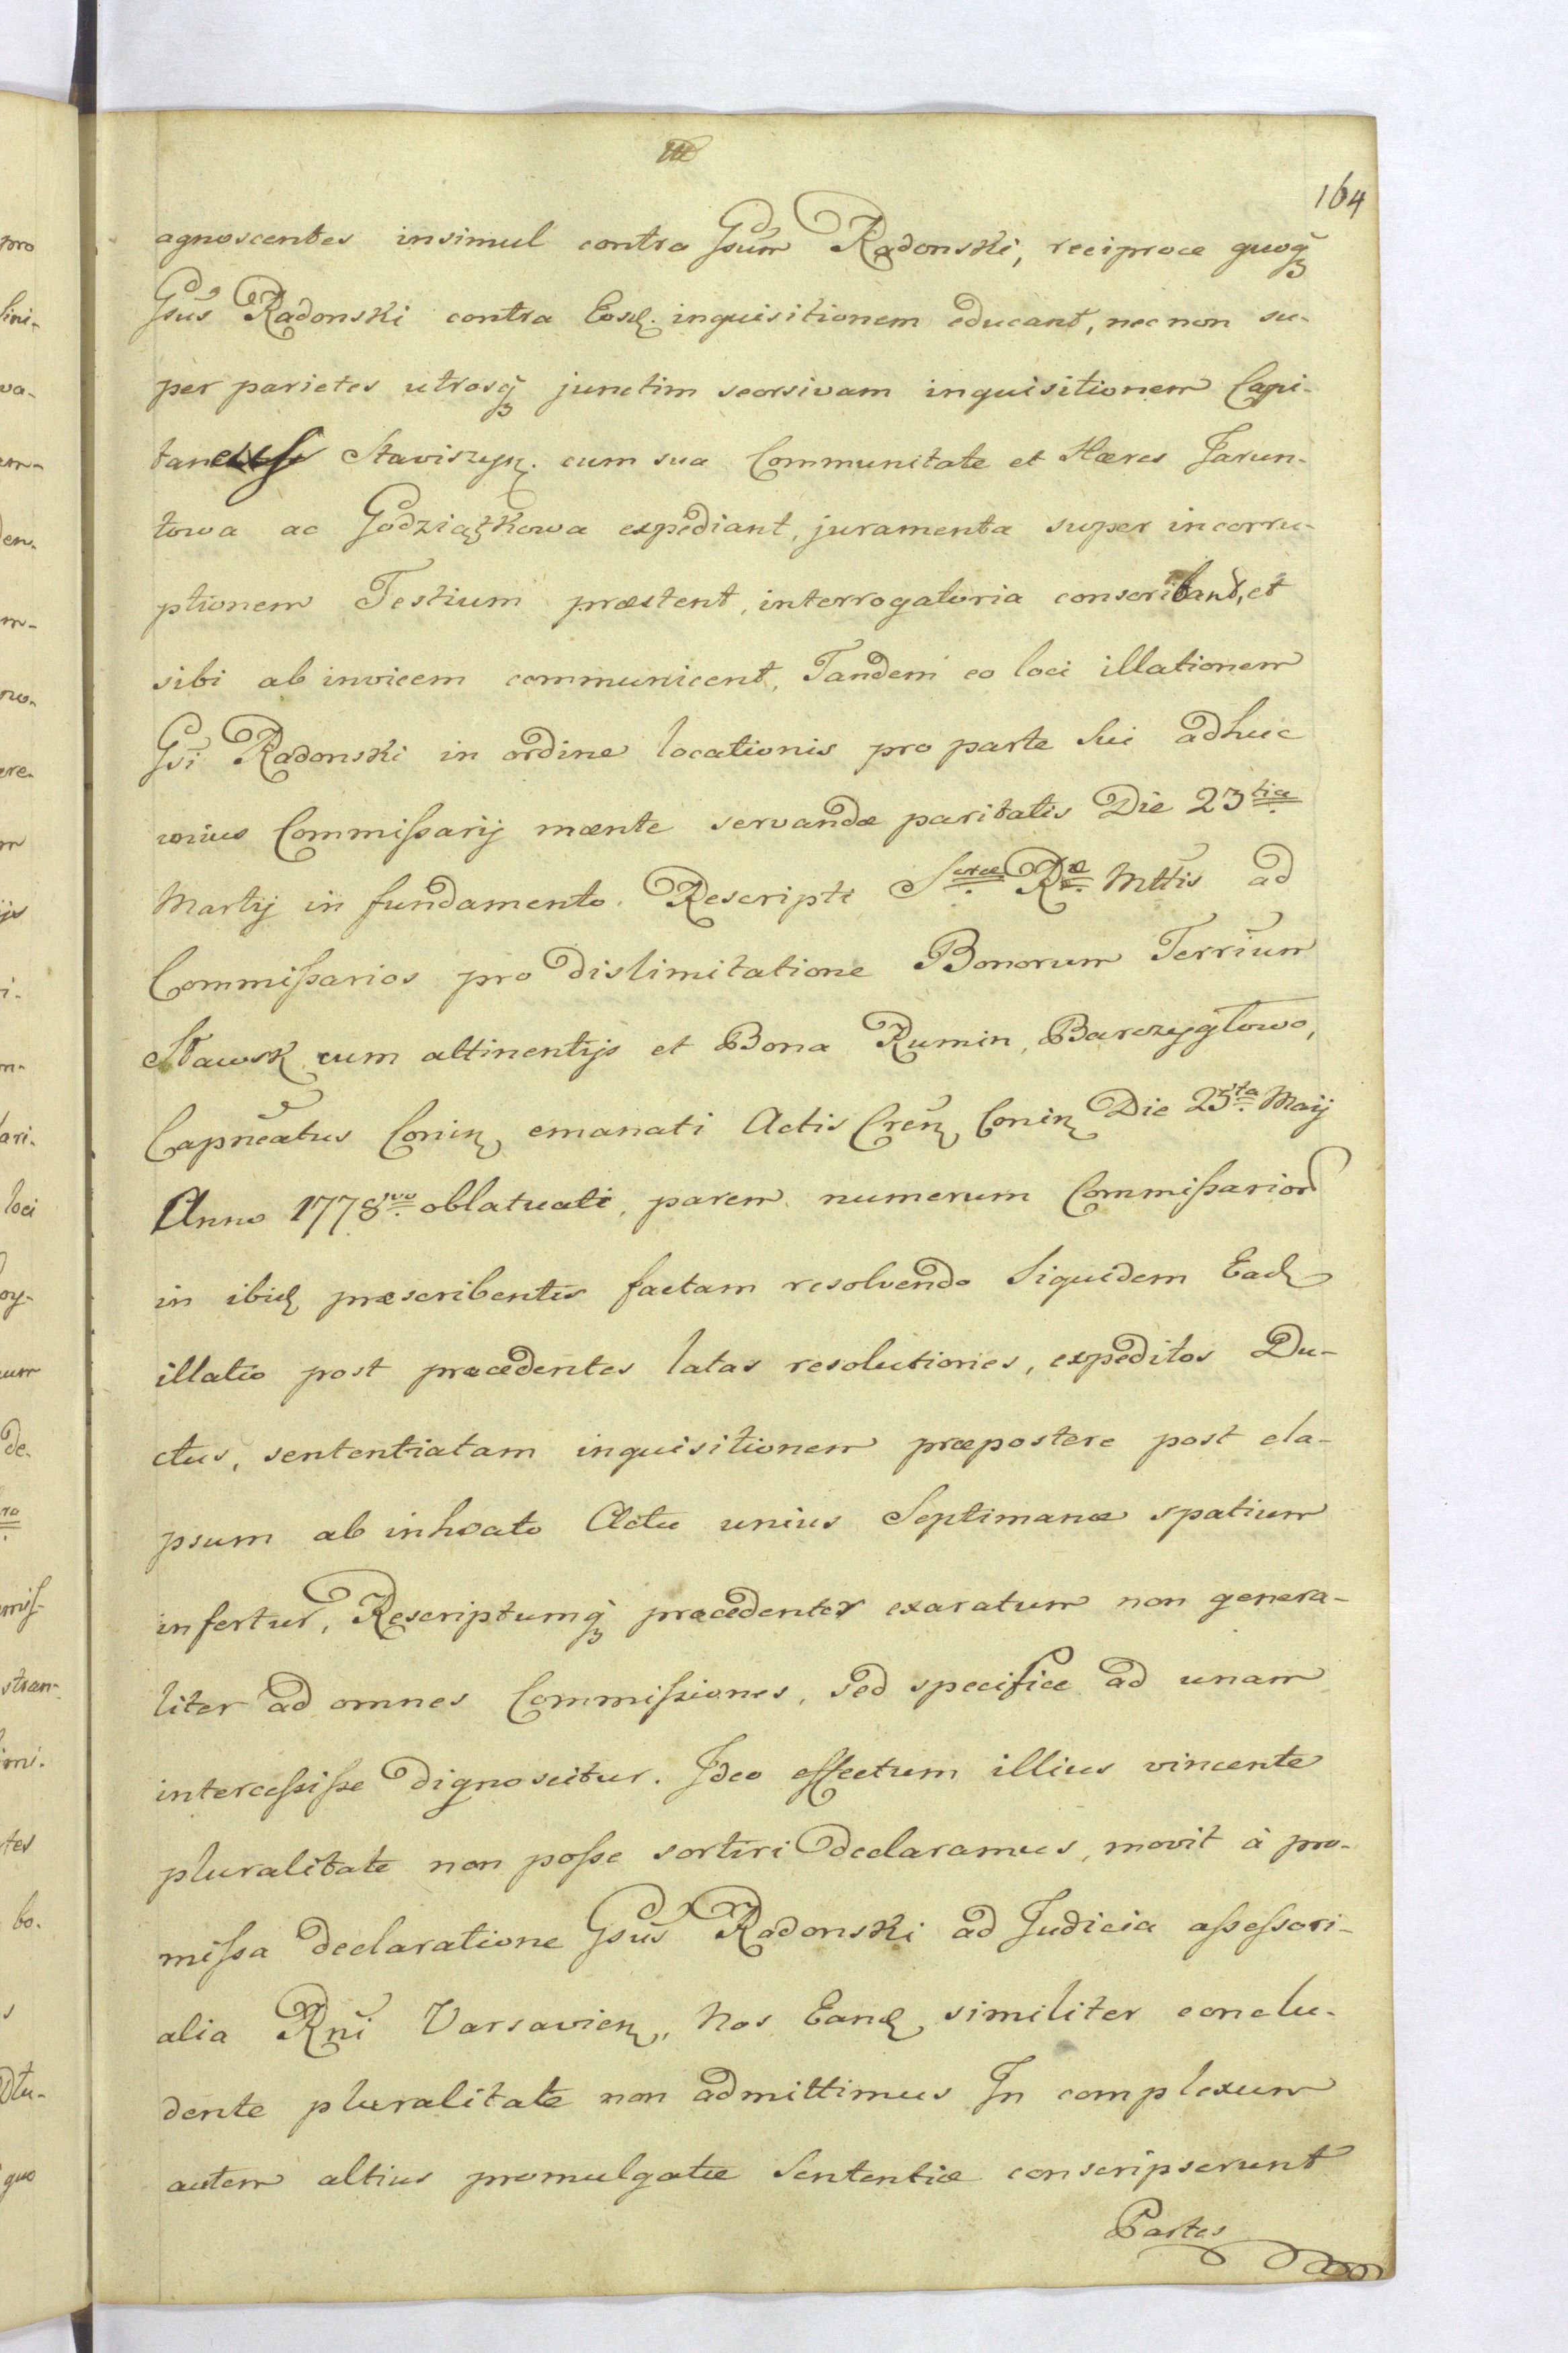 164
agnoscentes insimul contra Gsum Radonski, reciproce quoq̃
Gsus Radonski contra Eosd. inquisitionem educant, nec non su-
per parietes utrosq̃ junctim seorsivam inquisitionem Capi-
taneus Stawiszyn. cum sua Communitate et Hæres Jarun-
towa ac Godziątkowa expediant, juramenta super incorru-
ptionem Testium præstent, interrogatoria conscribant, et
sibi ab invicem communicent, Tandem eo loci illationem
Gsi Radonski in ordine locationis pro parte Sui adhuc
unius Commißarij mente servandæ paritatis Die 23tia
Martij in fundamento Rescripti Scræ Ræ Mttis ad
Commißarios pro dislimitatione Bonorum Terrium
Sławsk cum attinentijs et Bona Rumin, Barczygłowo,
Capneatus Conin emanati Actis Cren Conin Die 25ta Maij
Anno 1778vo oblatuati, parem numerum Commißarior
in ibid præscribentis factam resolvendo Siquidem Ead
illatio post præcedentes latas resolutiones, expeditos Du-
ctus, sententiatam inquisitionem præpostere post ela-
psum ab inhoato Actu unius Septimanæ spatium
infertur, Rescriptumq̃ præcedenter exaratum non genera-
liter ad omnes Commißiones, sed specifice ad unam
interceßiße dignoscitur. Ideo effectum illius vincente
pluralitate non poße sortiri declaramus, movit à præ-
mißa declaratione Gsus Radonski ad Judicia aßeßori-
alia Rni Varsavien, Nos Eand similiter conclu-
dente pluralitate non admittimus In complexum
autem altius promulgatæ Sententiæ conscripserunt
Partes